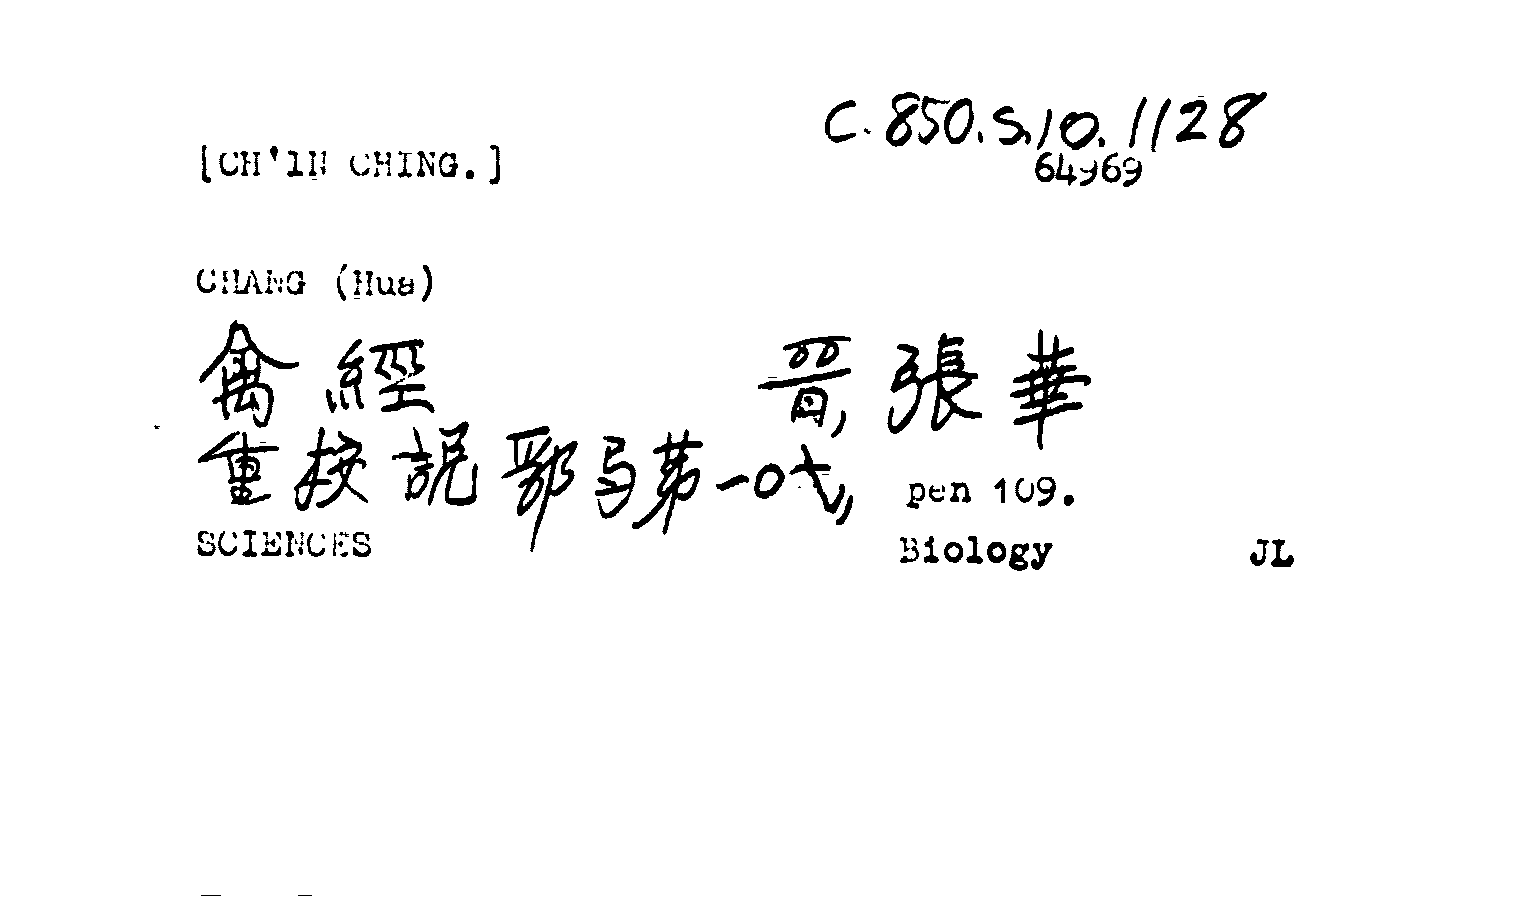 C.850.S.10.1128
[CH'IN CHING.]
64969
CHANG (Hua)
禽經 晉, 張華
重校說郛弓第一〇七, pen 109.
SCIENCES Biology JL